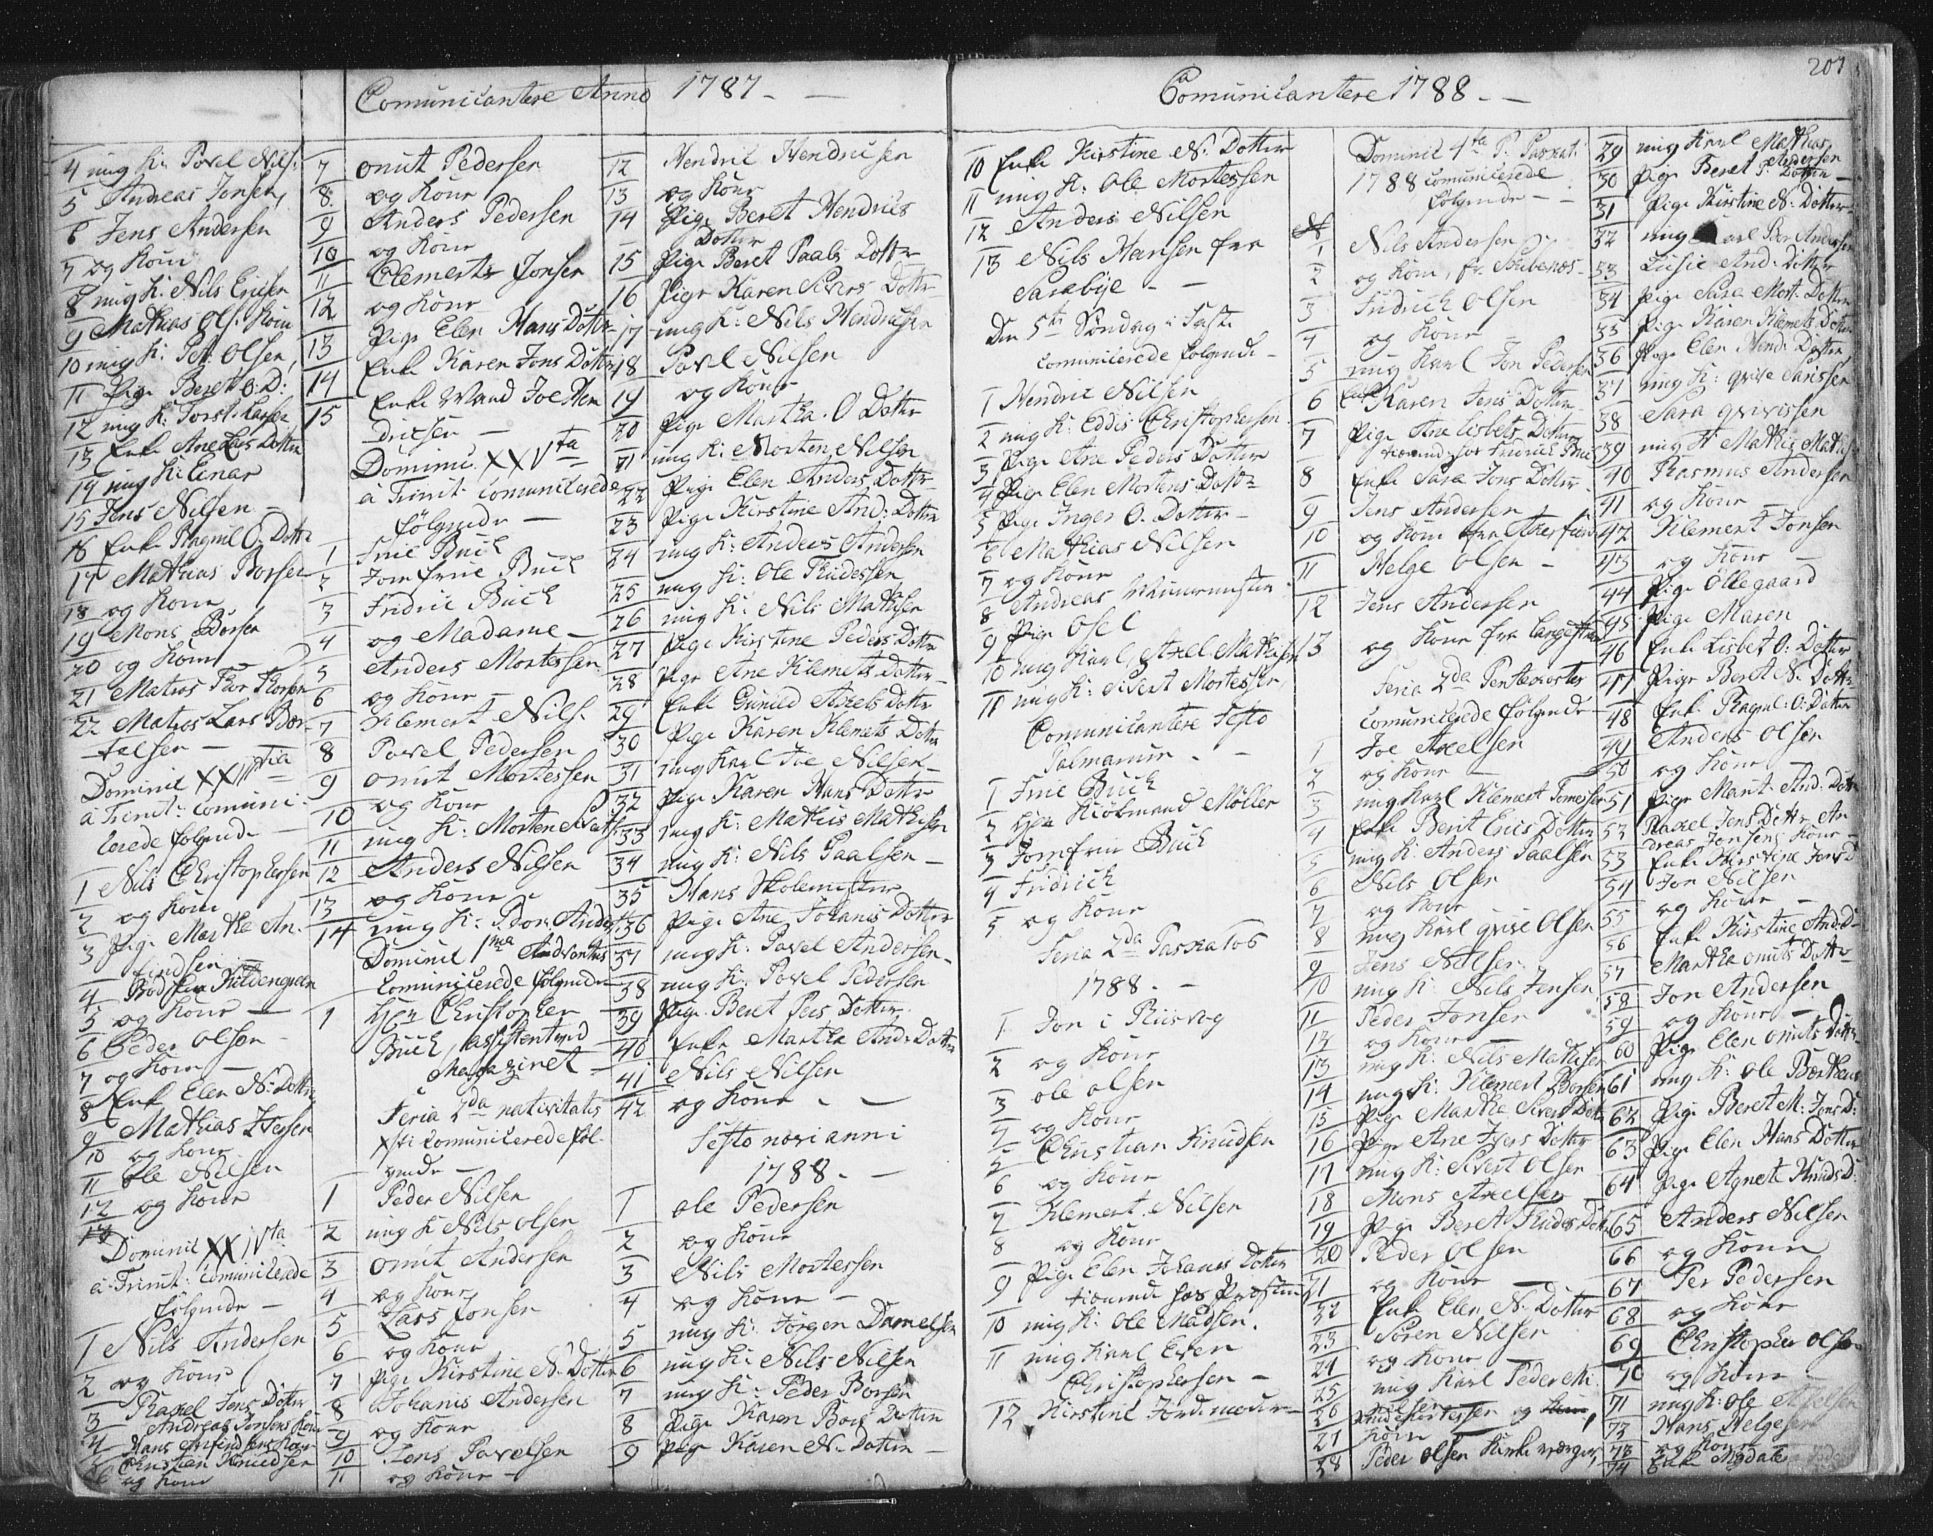 Comunicantere Anno 1787 - -
4 ung K: Povel Nils:
5 Andreas Jonsen,
6 Jens Andersen
7 og Kone
8 ung K: Nils Ericsen
9 Mathias Ols: Kone
10 ung K: Pet: Olsen,
11 Pige Beret O: D:
12 ung K: Torst: Larsen
13 Enke Ane Lars Dotter
14 ung K: Einar
15 Jens Nilsen -
16 Enke Ragnil O: Dottr
17 Mathias Borsen
18 og Kone
19 Mons Borsen
20 og Kone
21 Matros Thor Thorsen
22 Matros Lars Bær-
telsen -
Dominic XXIII tia
à Trinit: comuni-
cerede følgende -
1 Nils Christophersen
2 og Kone
3 Pige Martha An-
findsen
4 Bødker Kildengreen
5 og Kone -
6 Peder Olsen -
7 og Kone -
8 Enke Elen N: Dotter
9 Mathias Iversen
10 og Kone
11 Ole Nilsen
12 og Kone
13
Dominic XXIV ta
à Trinit: comunicerede
følgende -
1 Nils Andersen
2 og Kone
3 Rakel Jens Dotter
Andreas Jonsens Kone
4 Hans Anfindsens Kone
5 Christian Knudsen
6 og Kone
7 Onut Pedersen
8 og Kone
9 Anders Pedersen
10 og Kone
11 Clemerts Jonsen
12 og Kone
13 Pige Elen Hans Dotter
14 Enke Karen Jons Dotter
15 Enke Mand Joe Hen
dricsen -
Dominic XXV ta
à Trinit: comunicerede
følgende -
1 Frue Buch
2 Jomfrue Buch
3 Fridric Buch
4 og Madame -
5 Anders Mortessen
6 og Kone -
7 Klemert Nils:
8 Povel Pedersen
9 Onut Mortessen
10 og Kone
11 ung K: Morten
12 Anders Nilsen
13 og Kone
14 ung K: Anders
Dominic 1ma Adventus
comunicerede følgende
1 Her Christopher
Buch, assistent ved
Magazinet -
Feria 2da nativitatis
xsti comunicerede føl-
gende -
1 Peder Nilsen
2 ung K Nils Olsen
3 Onut Andersen
4 og Kone
5 Lars Jonsen
6 og Kone
7 Pige Kirstine N: Dotter
8 Johanis Andersen
9 og Kone
10 Jens Pavelsen
11 og Kone -
12 Hendric Hendricsen
13 og Kone
14 Pige Beret Hendrics
Dotter
15 Pige Beret Paals Dotter
16 Pige Karen Sivers Dotter
17 ung K: Nils Hendricsen
18 Povl Nilsen
19 og Kone
20 Pige Martha O Dotter
21 ung K: Morten Nelsen
22 Pige Elen Anders Dotter
23 Pige Kirstine And: Dotter
24 ung K: Anders Andersen
25 ung K: Ole Thidessen
26 ung K: Nils Mathisen
27 Pige Kirstine Peders Dotter
28 Pige Ane Klemets Dotter
29 Enke Gunild Axels Dotter
30 Pige Karen Klemets Dotter
31 ung Karl Joe Nilsen -
32 Pige Karen Hans Dotter
33 ung K: Mathis Mathisen
34 ung K: Nils Paalsen -
35 Hans Skolemester
36 Pige Ane Johanis Dotter
37 ung K: Pavel Andersen -
38 ung K: Povel Pedersen
39 Pige Beret Pers Dotter
40 Enke Martha And: Dotter
41 Nils Nilsen
42 og Kone - -
Festo novi anni
1788. -
1 Ole Pedersen
2 og Kone
3 Nils Mortessen
4 og Kone -
5 ung K: Jørgen Danielsen
6 ung K: Nils Nilsen
7 ung K: Peder Borsen
8 Pige Karen Bors Dotter
9 Pige Karen N: Dotter -
Comunicantere 1788. - -
207
10 Enke Kirstine N: Dotter
11 ung K: Ole Mortessen
12 Anders Nilsen
13 Nils Hansen fra
Sarebye - -
Den 5te Søndag i Faste
comunicerede følgende -
1 Hendric Nilsen
2 ung K: Eddis Christophersen
3 Pige Ane Peders Dotter
4 Pige Elen Mortens Dotter
5 Pige Inger O. Dotter -
6 Mathias Nilsen
7 og Kone
8 Andreas Muurmester
9 Pige Osel
10 ung Karl, Axel Mathisen
11 ung K: Sivert Mortessen
Comunicantere Festo
Palmarum - -
1 Frue Buch
2 Her Kiøbmand Møller
3 Jomfrue Buch
4 Fridrich
5 og Kone
Feria 2da Paskatos
1788. -
1 Jon i Riisvog
2 og Kone
3 Ole Olsen
4 og Kone
5 Christian Knudsen
6 og Kone
7 Klemert Nilsen
8 og Kone
9 Pige Elen Johanis Dotter
tienende hos Præsten
10 ung K: Ole Madsen.
11 ung Karl Even
Christophersen -
12 Kirstine Jordmoder -
Dominic 4ta P: Paskat:
1788 comunicerede
følgende - -
1 Nils Andersen
2 og Kone,
3 Fridrich Olsen
4 og Kone
5 ung Karl Jon Pedersen
6 Enke Karen Jens Dotter
7 Pige Ane Lisbets Dotter
tienende hos Fridrich Buch
8 Enke Sara Jons Dotter
9 Jens Andersen
10 og Kone fra
11 Helge Olsen -
12 Jens Andersen
13 og Kone fra
Feria 2da Pentecostes
comunicerede følgende -
1 Joe Axelsen
2 og Kone -
3 ung Karl Klemert Tomessen
4 Enke Berit Erics Dotter
5 ung K: Anders Paalsen
6 Nils Olsen
7 og Kone
8 ung Karl Grise Olsen
9 Jens Nilsen -
10 ung K: Nils Jensen
11 Peder Jonsen
12 og Kone -
13 ung K: Nils Mathisen
14 ung K: Klemert Borsen
15 Pige Martha Sivers Dotter
16 Pige Ane Ivers Dotter
17 ung K: Sivert Olsen
18 Mons Axelsen
19 Pige Beret Thides Dotter
20 Peder Olsen
21 og Kone -
22 Enke Elen N: Dotter
23 Søren Nilsen
24 og Kone
25 ung Karl Peder
26 og
27 Kone
28 Peder Olsen Kirkeværger,
29 ung Karl Mathias
Andersen
30 Pige Beret P: Dotter -
31 Pige Kirstine N: Dotter -
32 ung Karl Peder Andersen
33 Lucie And: Dotter
34 Pige Sara Mort: Dotter
35 Pige Karen Klemets Dotter
36 Pige Elen Hend: Dotter
37 ung K: Grise Larissen
38 Sara Grisissen
39 ung K Mathis Mathis:
40 Rasmus Andersen
41 og Kone -
42 Klemert Jonsen
43 og Kone -
44 Pige Ollegaard
45 Pige Maren
46 Enke Lisbet O: Dotter
47 Pige Beret N: Dotter
48 Enke Ragnil: O: Dotter
49 Anders Olsen
50 og Kone -
51 Pige Marit And: Dotter
52 Rakel Jens Dottr An
dreas Jonsens Kone -
53 Enke Kirstine Jons D
54 Jon Nilsen
55 og Kone -
56 Enke Kirstine And: D:
57 Martha Onuts Dotter
58 Jon Andersen
59 og Kone -
60 Pige Elen Onuts Dotter
61 ung K: Ole Bærthels
62 Pige Beret M: Jons D:
63 Pige Elen Hans Dotter
64 Pige Agnete Knuds D:
65 Anders Nilsen
66 og Kone
67 Per Pedersen
68 og Kone
69 Christopher Olsen
70 og Kone -
71 ung K: Ole Axelsen
72 Hans Helgesen
73 og Kone
74 Enke Magdalena